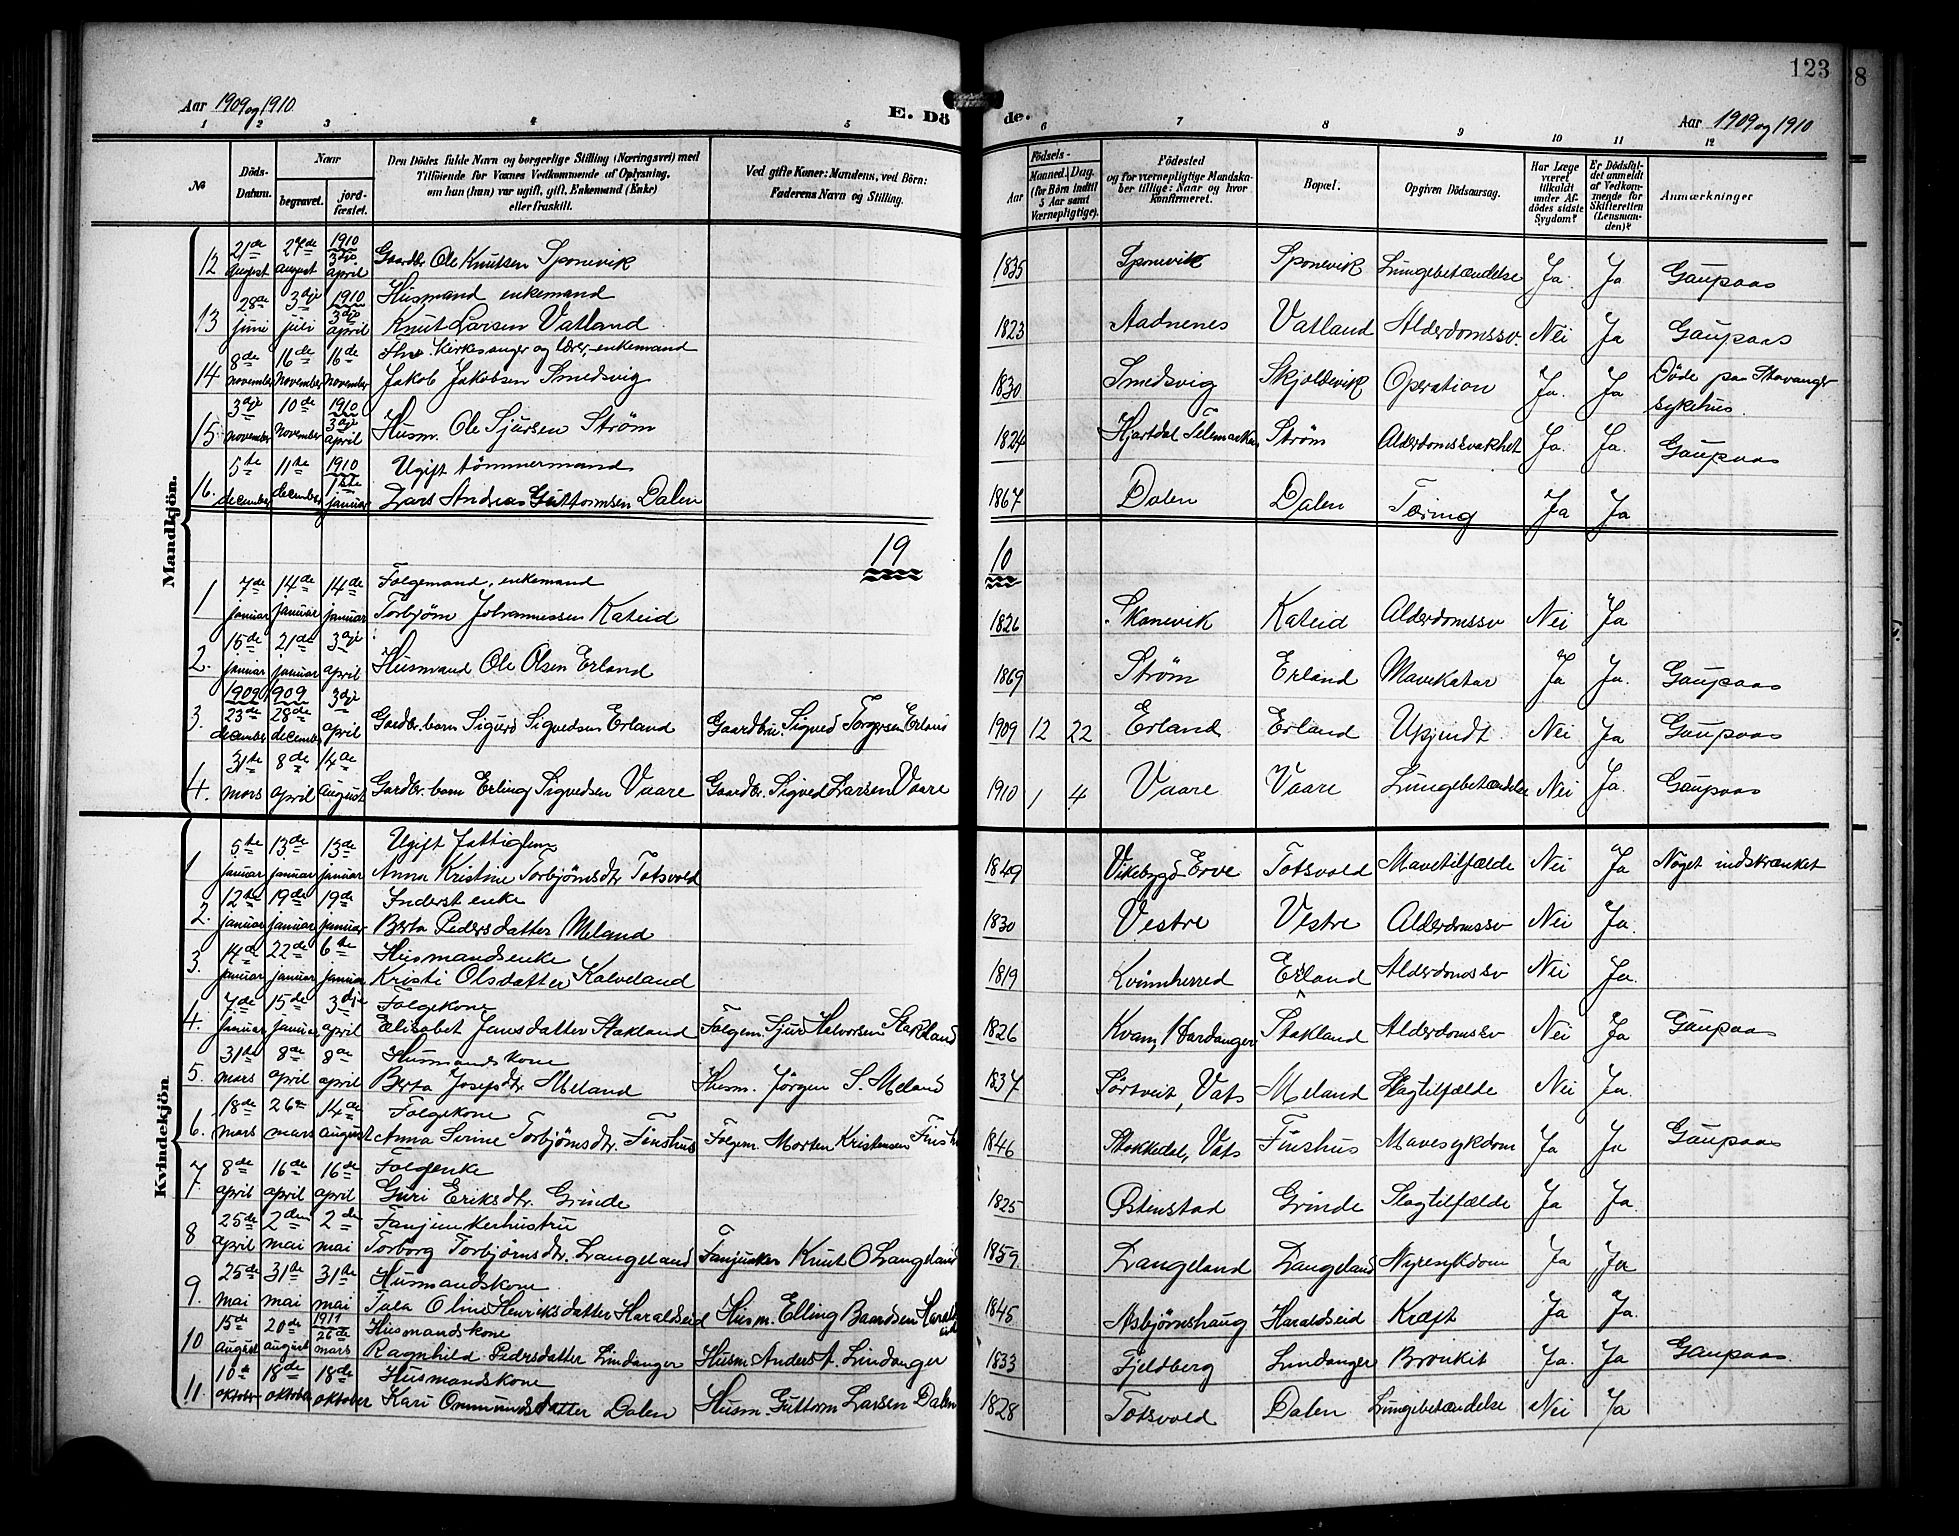 123
Aar 1909 og 1910
E. Dö de.
Aar 1909 og 1910
1 2 3 4 5 6 7 8 9 10 11 12
No
Döds-Datum.
Naar
begravet.
jord-fæstet.
Den Dödes fulde Navn og borgerlige Stilling (Næringsvei) med
Tilföiende for Voxnes Vedkommende af Oplysning,
om hun (han) var ugift, gift, Enkemand (Enke)
eller fraskilt.
Ved gifte Koner: Mandens, ved Börn:
Faderens Navn og Stilling.
Födsels-
Aar
Maaned. Dag.
(for Börn indtil
5 Aar samt
Værnepligtige).
Födested
og for værnepligtige Mandska-
ber tillige: Naar og hvor
konfirmeret.
Bopæl.
Opgiven Dödsaarsag.
Har Læge
været
tilkaldt
under Af-
dödes sidste
Sygdom?
Er Dödsfal-
det anmeldt
af Vedkom-
mende for
Skifteretten
(Lensman-
den)?
Anmærkninger
Mandkjön.
12 21de august 27de august 1910 3dje april Gaardbr. Ole Knutsen Sponevik 1835 Sponevik Sponevik Lungebetændelse Ja. Ja Gaupaas
Husmand enkemand
13 28de juni 3dje juli 1910 3dje april Knut Larsen Vatland 1823 Aadnenes Vatland Alderdomssv. Nei Ja Gaupaas
Kirkesanger og lærer, enkemand
14 8de november 16de november 16de november Jakob Jakobsen Smedsvig 1830 Smedsvig Skjoldevik Operation Ja. Ja Døde paa Stavanger sykehus.
15. 3dje november 10de november 1910 3dje april Husm. Ole Sjursen Strøm 1824 Hjartdal Telemarken Strøm Alderdomssvakhet Ja. Ja. Gaupaas
Ugift tømmermand
16. 5te december 11te december 1910 januar Lars Andreas Guttormsen Dalen 1867 Dalen Dalen Tæring Ja Ja
19 10
Folgemand, enkemand
1 7de januar 14de januar 14de januar Torbjørn Johannessen Kateid 1826 Skanevik Kateid Alderdomssv Nei Ja
2. 15de januar 21de januar 3dje april Husmand Ole Olsen Erland 1869 Strøm Erland Mavekatar Ja Ja. Gaupaas
3. 1909 23de december 1909 28de december 3dje april Gardbr. barn Sigurd Sigvedsen Erland Gaardbru. Sigved Torgersen Erland 1909 12 22 Erland Erland Nei Ja Gaupaas
4. 31te mars 8de april 14de august Gardbr. barn Erling Sigvedsen Vaare Gaardbr. Sigved Larsen Vaare 1910 1 4 Vaare Vaare Lungebetændelse Nei Ja. Gaupaas
Kvindekjön.
Ugift fattiglem
1 5te januar 13de januar 13de januar Anna Kristine Torbjørnsdtr Totsvold 1849 Vikebygd Erve Totsvold Mavetilfælde Nei Ja Noget indskrænket
Inderst enke
2. 12te januar 19de januar 19de januar Berta Pedersdatter Meland 1830 Vestre Vestre Alderdomssv Nei Ja.
Husmandsenke
3. 14de januar 22de januar 6te januar Kristi Olsdatter Kalveland 1819 Kvinnherred Erland Alderdomssv Nei Ja.
Folgekone
4. 7de januar 15de januar 3dje april Elisabet Jansdatter Stakland Folgem. Sjur Halvorsen Stakland 1826 Kvam, Hardanger Stakland Alderdomssv Nei Ja Gaupaas
Husmandskone
5. 31te mars 8de april 8de april Berta Josefsdtr Meland Husm. Jørgen S. Meland 1837 Sørtveit, Vats Meland Slagtilfælde Nei Ja.
Folgekone
6. 18de mars 26de mars 14de august Anna Serine Torbjørnsdtr. Finshus Folgem. Morten Kristensen 1846 Stokkedal, Vats Finshus Mavesykdom Ja Ja Gaupaas
Folgenke
7. 8de april 16de april 16de april Guri Eriksdtr. Grinde 1825 Østenstad Grinde Slagtilfælde Ja Ja.
Fanjunkerhustru
8 25de april 2den mai 2den mai Torborg Torbjørnsdtr. Langeland Fanjunker Knut O Langeland 1859 Langeland Langeland Nyresykdom Ja Ja
Husmandskone
9. 25de mai 31te mai 31te mai Tala Oline Henriksdatter Haraldseid Husm. Elling Baardsen Haraldseid 1845 Asbjørnshaug Haraldseid Kræft Ja Ja.
Husmandskone
10 15de august 20de august 1911 26de mars Ragnhild Pedersdatter Lindanger Husm Anders A. Lindanger 1833 Fjeldberg Lindanger Bronkit Ja. Ja Gaupaas.
Husmandskone
11. 10de oktober 18de oktober 18de oktober Kari Ommundsdatter Dalen Husm. Guttorm Larsen Dalen 1828 Totsvold Dalen Lungebetændelse Nei Ja